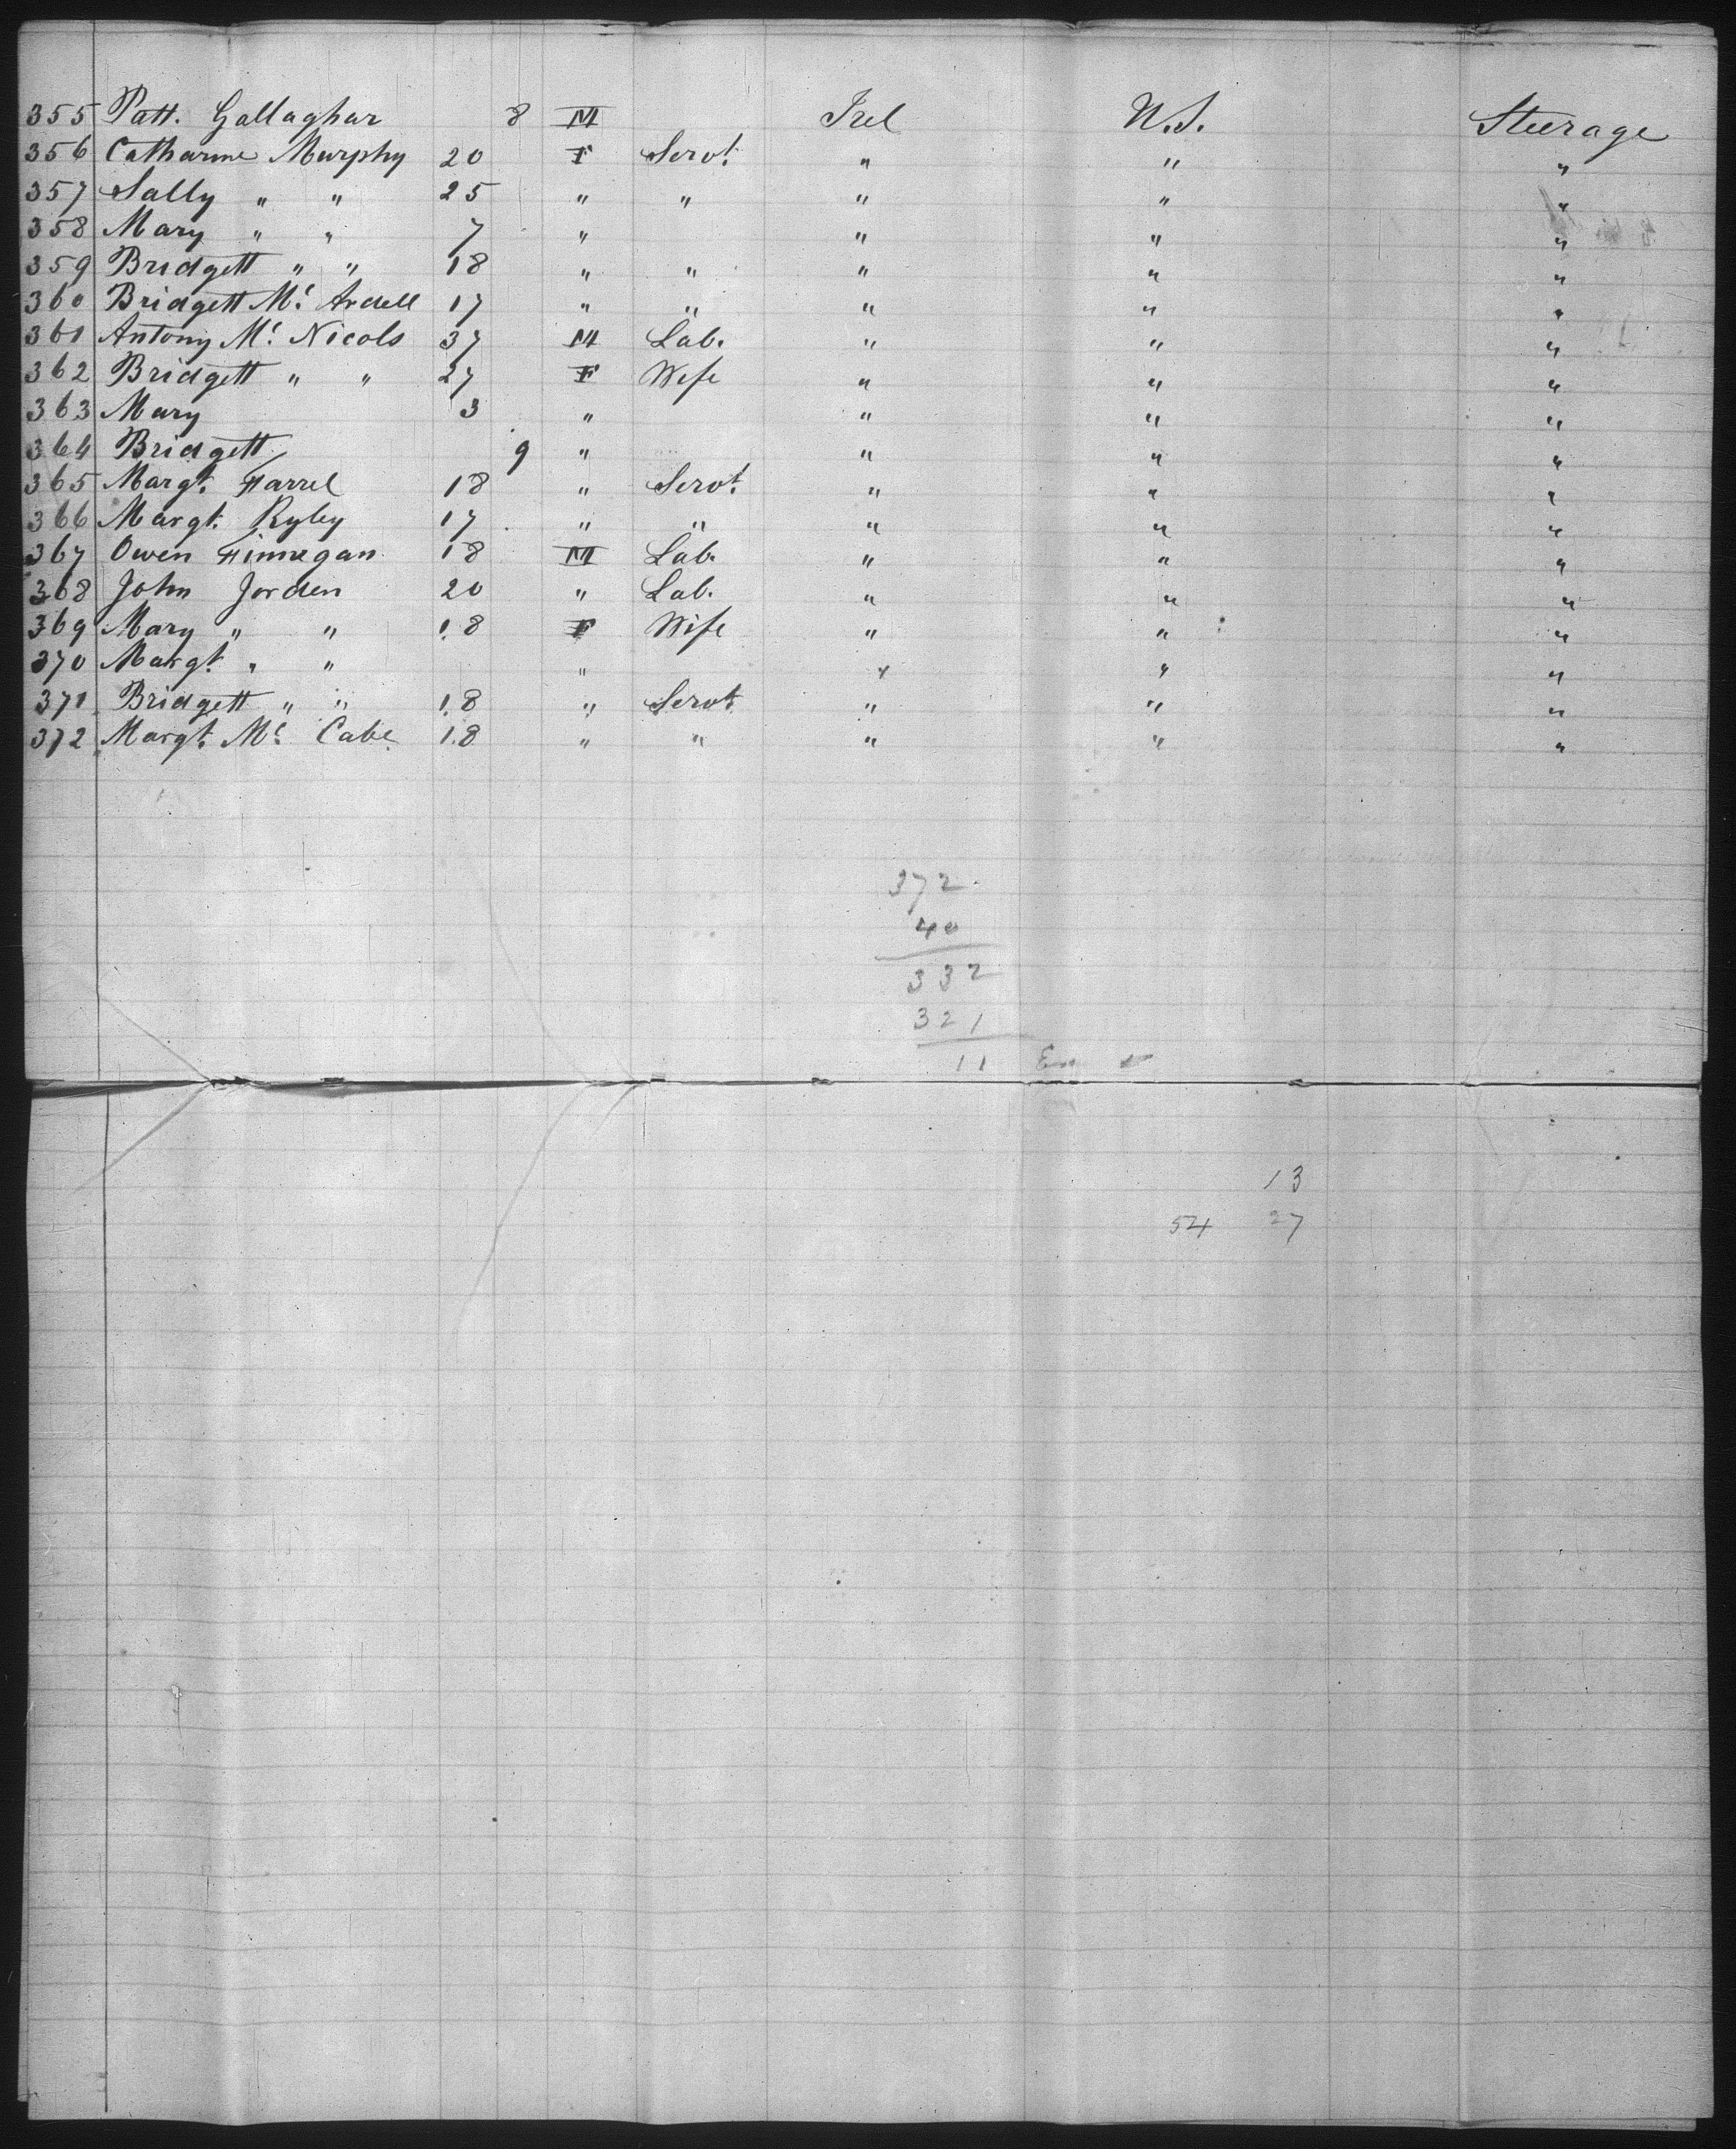 355 Patt. Gallaghar 8 M Irel U.S. Steerage
356 Catharine Murphy 20 F Servt. " " "
357 Sally " " 25 " " " " "
358 Mary " " 7 " " " "
359 Bridgett " " 18 " " " " "
360 Bridgett Mc. Ardell 17 " " " " "
361 Antony Mc. Nicols 37 M Lab. " " "
362 Bridgett " " 27 F Wife " " "
363 Mary 3 " " " "
364 Bridgett 9 " " " "
365 Margt. Farrel 18 " Servt. " " "
366 Margt. Ryley 17 " " " " "
367 Owen Finnegan 18 M Lab. " " "
368 John Jorden 20 " Lab. " " "
369 Mary " " 18 F Wife " " "
370 Margt. " " " " " "
371 Bridgett " " 18 " Servt. " " "
372 Margt. Mc. Cabe 18 " " " " "
372
40
332
321
11
13
54 27